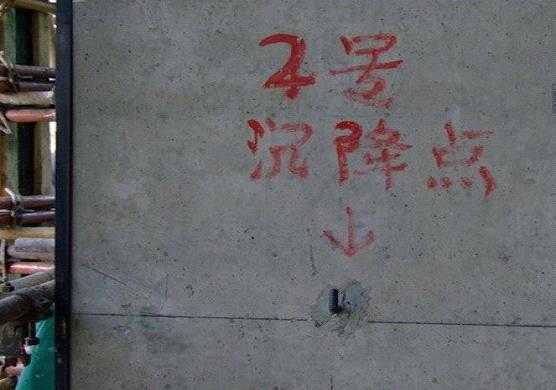 4号
沉降点
↓